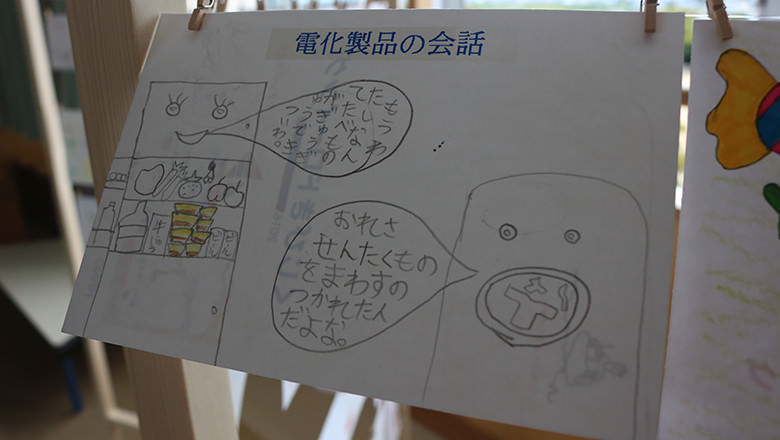 電化製品の会話
もうわ
たしなん
てたべもの
がぎゅうぎ
ゅうでき
ついわ。
おれさ
せんたくもの
をまわすの
つかれた人
だよな。